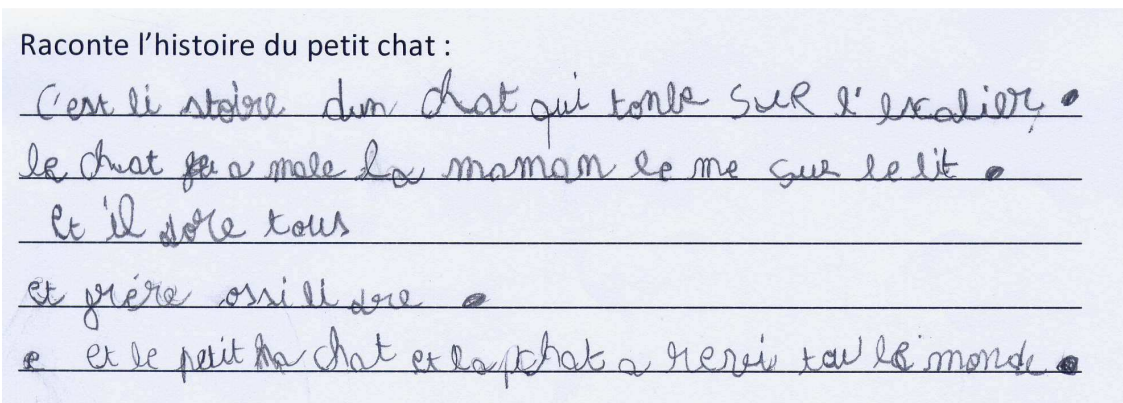 Raconte l'histoire du petit chat :
C'est li stoire dun chat qui tonbe SUR l'escalier .
le chat a male La maman le me sur le lit .
et il dore tous
et frére ossi li dore .
e et le petit chat et la chat a revei tou le monde .